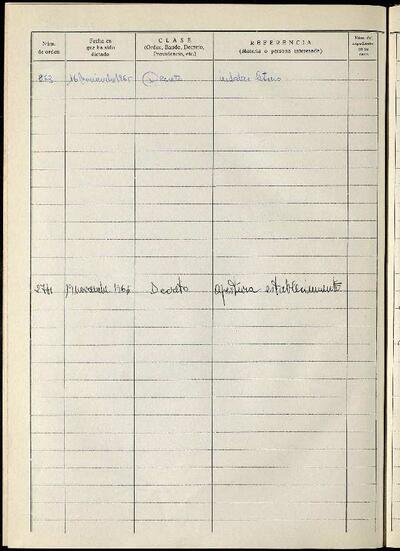 Núm. de orden
Fecha en que ha sido dictado
CLASE
(Orden, Bando, Decreto, Providencia, etc.)
REFERENCIA
(Materia o persona interesada)
Núm. del expediente en su caso
853 16 noviembre 1965 Decreto
19 noviembre 1965 Decreto Apertura establecimiento